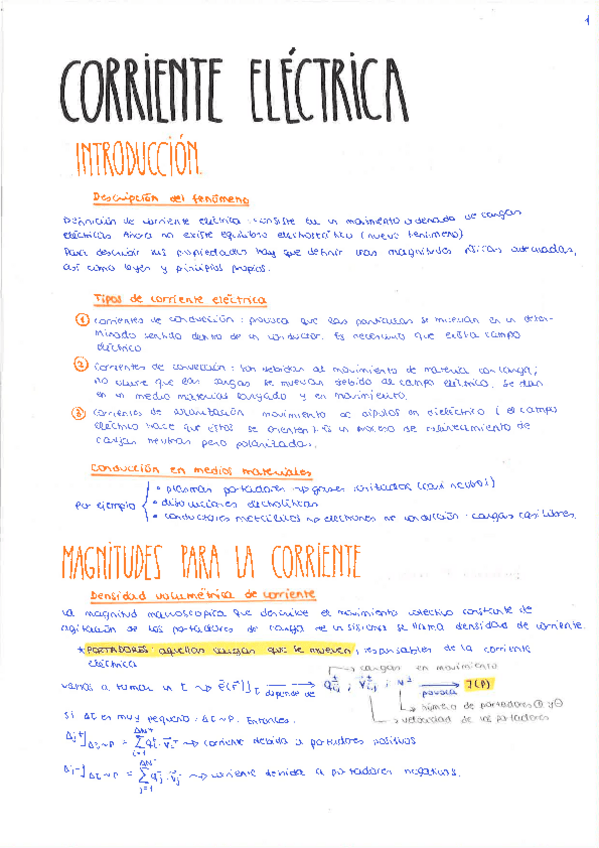 1
CORRIENTE ELÉCTRICA
INTRODUCCIÓN.
Descripción del fenómeno
Definición de corriente eléctrica: consiste en un movimiento ordenado de cargas
eléctricas. Ahora no existe equilibrio electrostático (nuevo fenómeno)
Para describir sus propiedades hay que definir unas magnitudes físicas adecuadas,
así como leyes y principios propios.
Tipos de corriente eléctrica
1 corrientes de conducción: provoca que las partículas se muevan en un deter-
minado sentido dentro de un conductor. Es necesario que exista campo
eléctrico
2 Corrientes de convección: son debidas al movimiento de materia con carga;
no ocurre que las cargas se muevan debido al campo eléctrico. Se dan
en un medio material cargado y en movimiento.
3 Corrientes de polarización movimiento de dipolos en dieléctrico (el campo
eléctrico hace que estos se orienten). Es un proceso de
cargas neutras pero polarizadas.
Conducción en medios materiales
Por ejemplo
• plasmas portadores gases ionizados (casi neutros)
• disoluciones electrolíticas
• conductores metálicos electrones de conducción: cargas casi libres.
MAGNITUDES PARA LA CORRIENTE
Densidad volumétrica de corriente
La magnitud macroscópica que describe el movimiento colectivo constante de
agitación de los portadores de carga de un sistema se llama densidad de corriente.
* PORTADORES: aquellas cargas que se mueven, responsables de la corriente
eléctrica
→ cargas en movimiento
vamos a tomar un t ⇝ depende de provoca J(P)
→ número de portadores ⊕ y ⊖
→ velocidad de los portadores
Si Δt es muy pequeño: Δt ~ P. Entonces.
⇝ corriente debida a portadores positivos
⇝ corriente debida a portadores negativos.